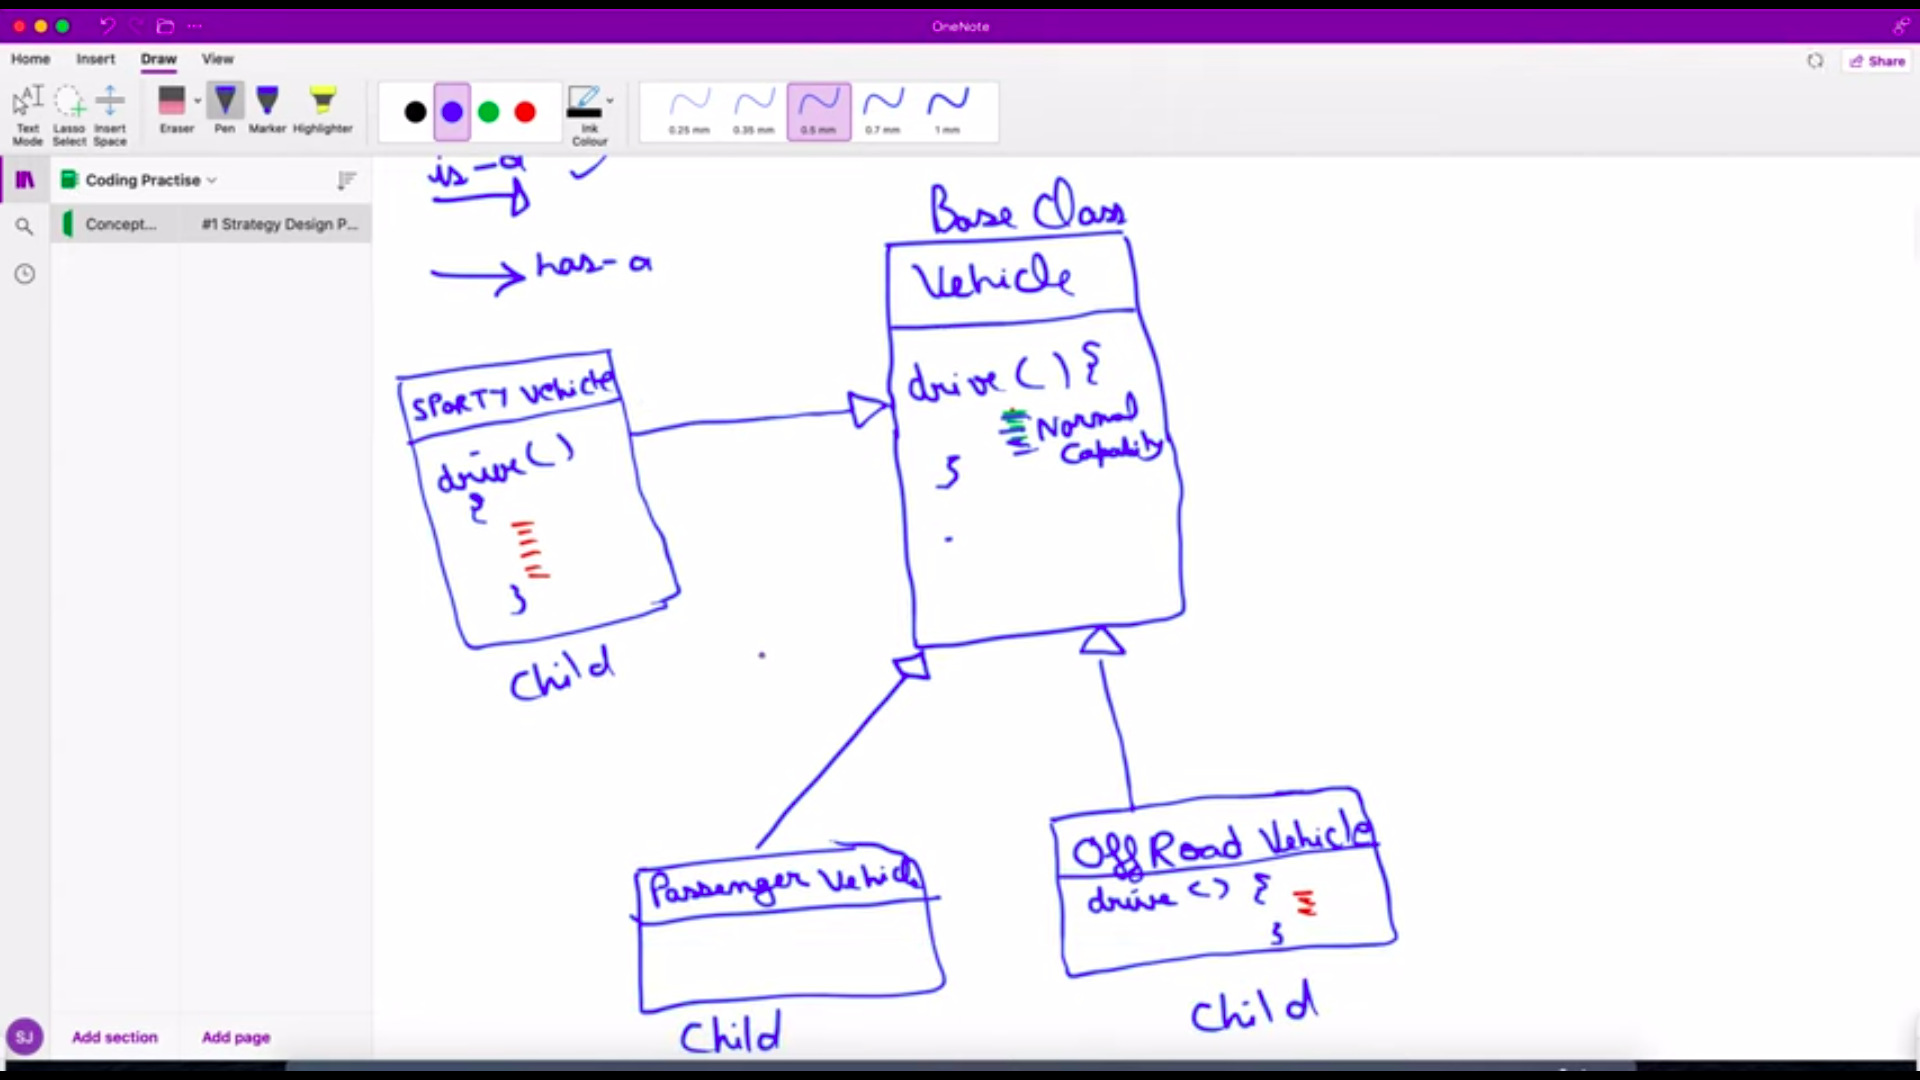 OneNote
Home Insert Draw View
Share
Text Mode
Lasso Select
Insert Space
Eraser
Pen
Marker
Highlighter
Ink Colour
0.25 mm
0.35 mm
0.5 mm
0.7 mm
1 mm
Coding Practise
Concept...
#1 Strategy Design P...
is-a
has-a
Base Class
Vehicle
drive () {
Normal
Capability
}
SPORTY Vehicle
drive ()
{
}
Child
Passenger Vehicle
Child
Off Road Vehicle
drive () {
}
Child
SJ
Add section
Add page